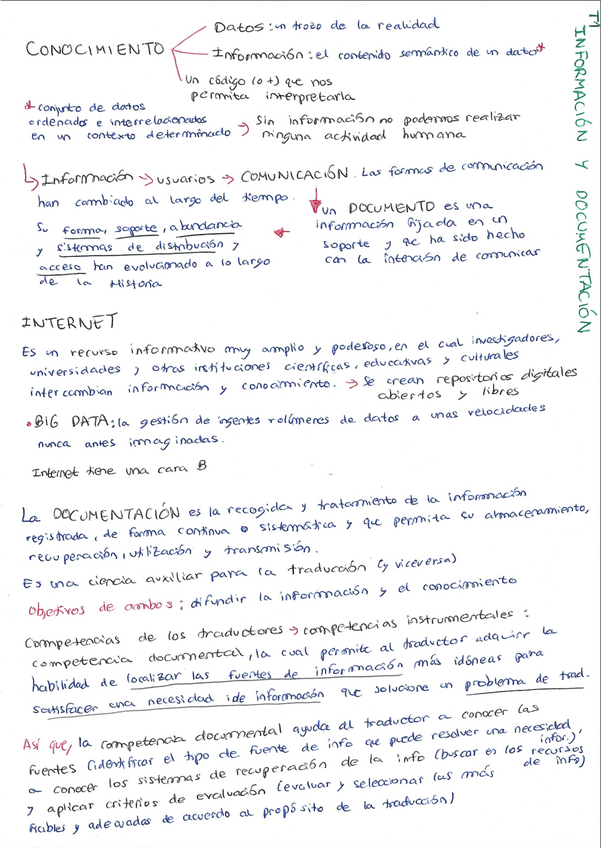 T1
INFORMACIÓN Y DOCUMENTACIÓN
Datos: un trozo de la realidad
CONOCIMIENTO
Información: el contenido semántico de un dato*
Un código (o +) que nos
permita interpretarla
* conjunto de datos
ordenados e interrelacionados
en un contexto determinado → Sin información no podemos realizar
ninguna actividad humana
↳ Información → usuarios → COMUNICACIÓN. Las formas de comunicación
han cambiado al largo del tiempo.
Su forma, soporte, abundancia
y sistemas de distribución y
acceso han evolucionado a lo largo
de la Historia
Un DOCUMENTO es una
información fijada en un
soporte y que ha sido hecho
con la intención de comunicar
INTERNET
Es un recurso informativo muy amplio y poderoso, en el cual investigadores,
universidades y otras instituciones científicas, educativas y culturales
intercambian información y conocimiento. → Se crean repositorios digitales
abiertos y libres
• BIG DATA: la gestión de ingentes volúmenes de datos a unas velocidades
nunca antes imaginadas.
Internet tiene una cara B
La DOCUMENTACIÓN es la recogida y tratamiento de la información
registrada, de forma continua o sistemática y que permita su almacenamiento,
recuperación, utilización y transmisión.
Es una ciencia auxiliar para la traducción (y viceversa)
Objetivos de ambos: difundir la información y el conocimiento
Competencias de los traductores → competencias instrumentales:
competencia documental, la cual permite al traductor adquirir la
habilidad de localizar las fuentes de información más idóneas para
satisfacer una necesidad de información que solucione un problema de trad.
Así que, la competencia documental ayuda al traductor a conocer las
fuentes (identificar el tipo de fuente de info que puede resolver una necesidad
infor.),
a conocer los sistemas de recuperación de la info (buscar en los recursos
de info)
y aplicar criterios de evaluación (evaluar y seleccionar las más
fiables y adecuadas de acuerdo al propósito de la traducción)